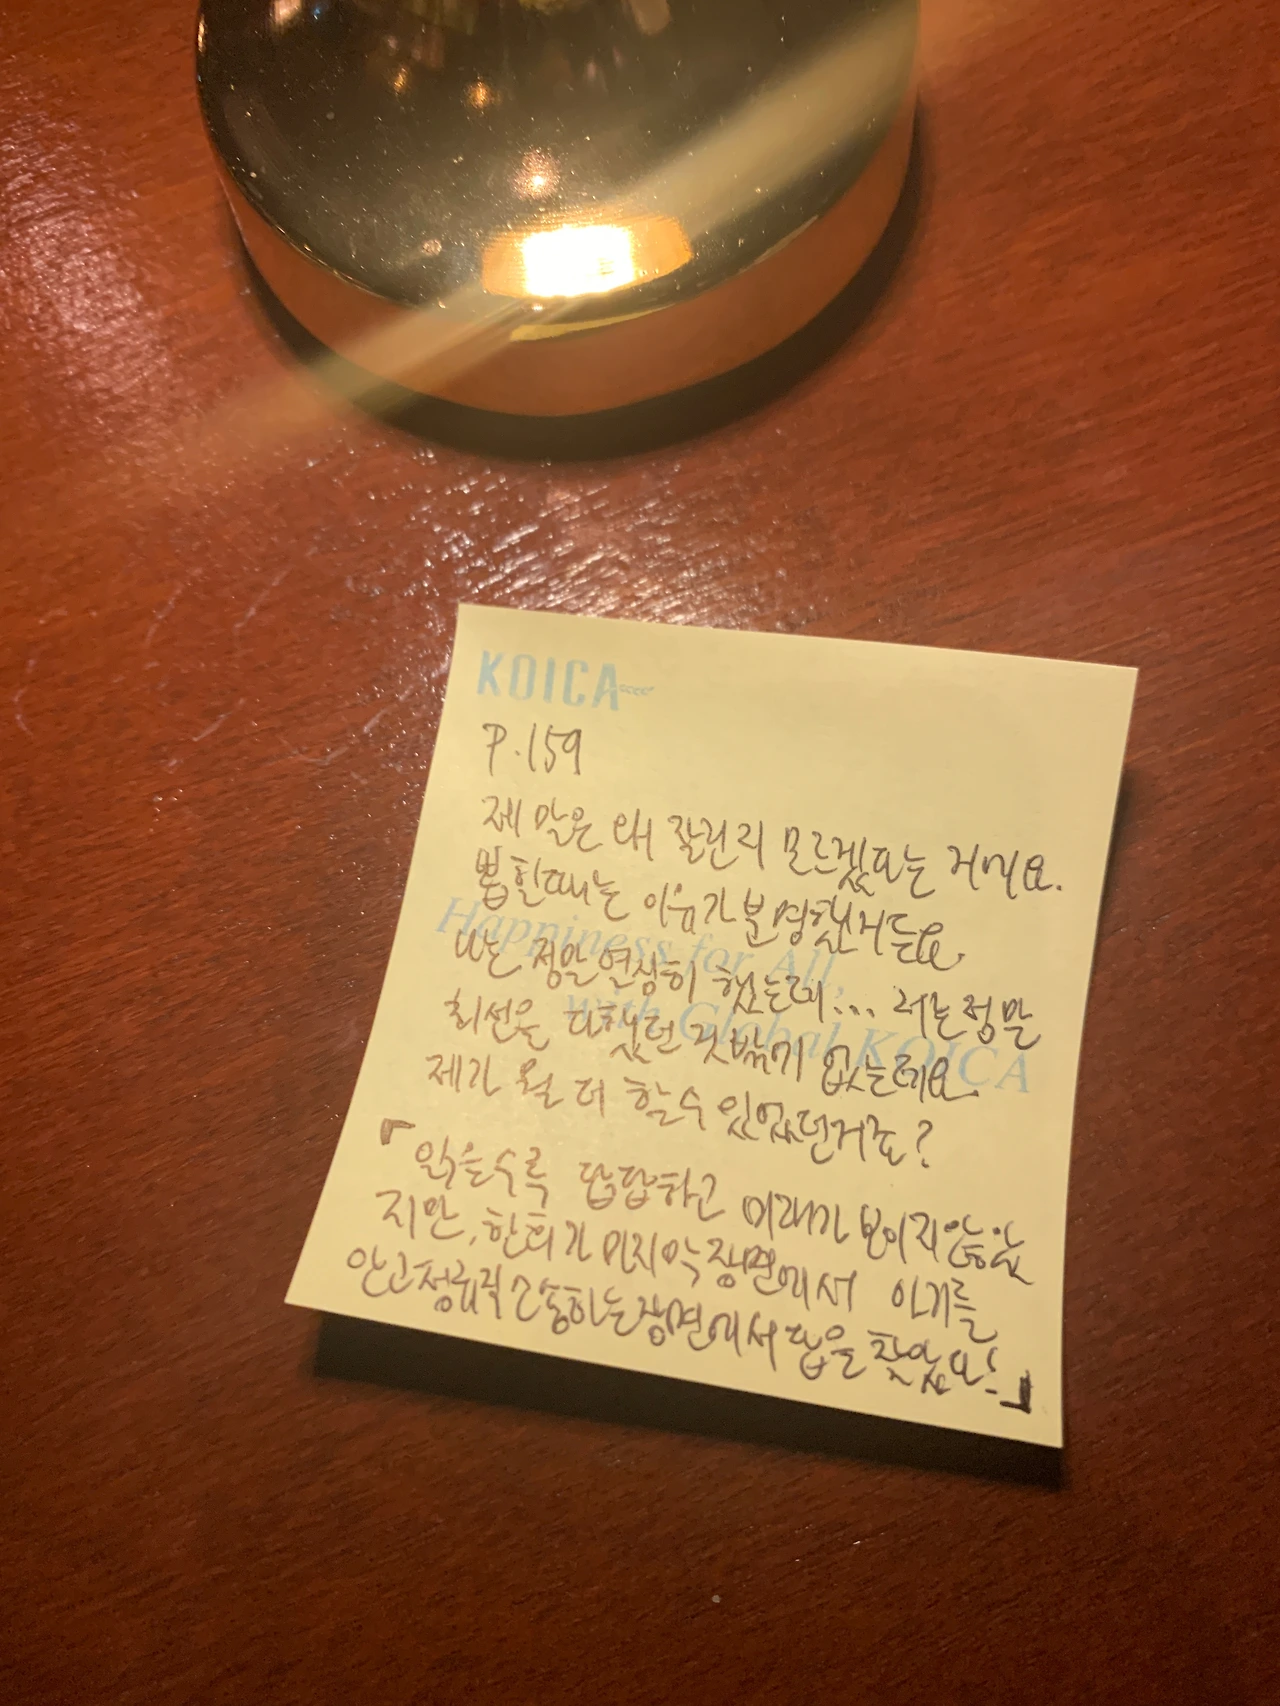 KOICA
P.159
제 말은 왜 잘린지 모르겠다는 거예요.
뽑힐때는 이유가 분명했거든요.
나는 정말 열심히 했는데... 저는 정말
최선을 다했던 것밖에 없는데요.
제가 뭘 더 할수 있었던거죠?
「읽을수록 답답하고 미래가 보이지않았
지만, 한희가 마지막장면에서 아기를
안고 하는장면에서 답을 찾았다!」
Happiness for All,
with Global KOICA